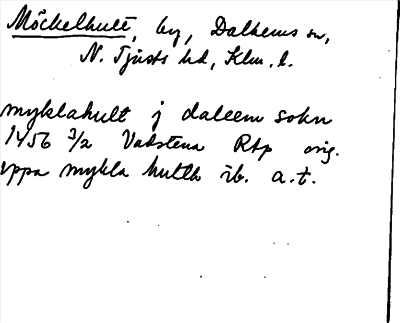 Möckelhult, by, Dalhems sn,
N. Tjusts hd, Klm. l.
myklahult j daleem sokn
1456 3/2 Vadstena Rtp orig.
uppa mykla hulth ib. a.t.